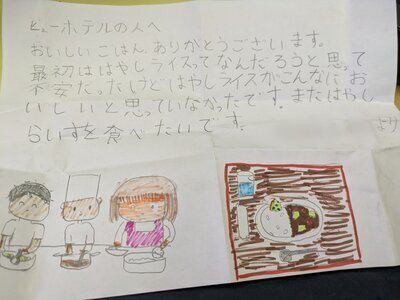 ビューホテルの人へ
おいしいごはん、ありがとうございます。
最初ははやしライスってなんだろうと思って
不安だったけどはやしライスがこんなにお
いしいと思っていなかったです。またはやし
らいすを食べたいです。
より